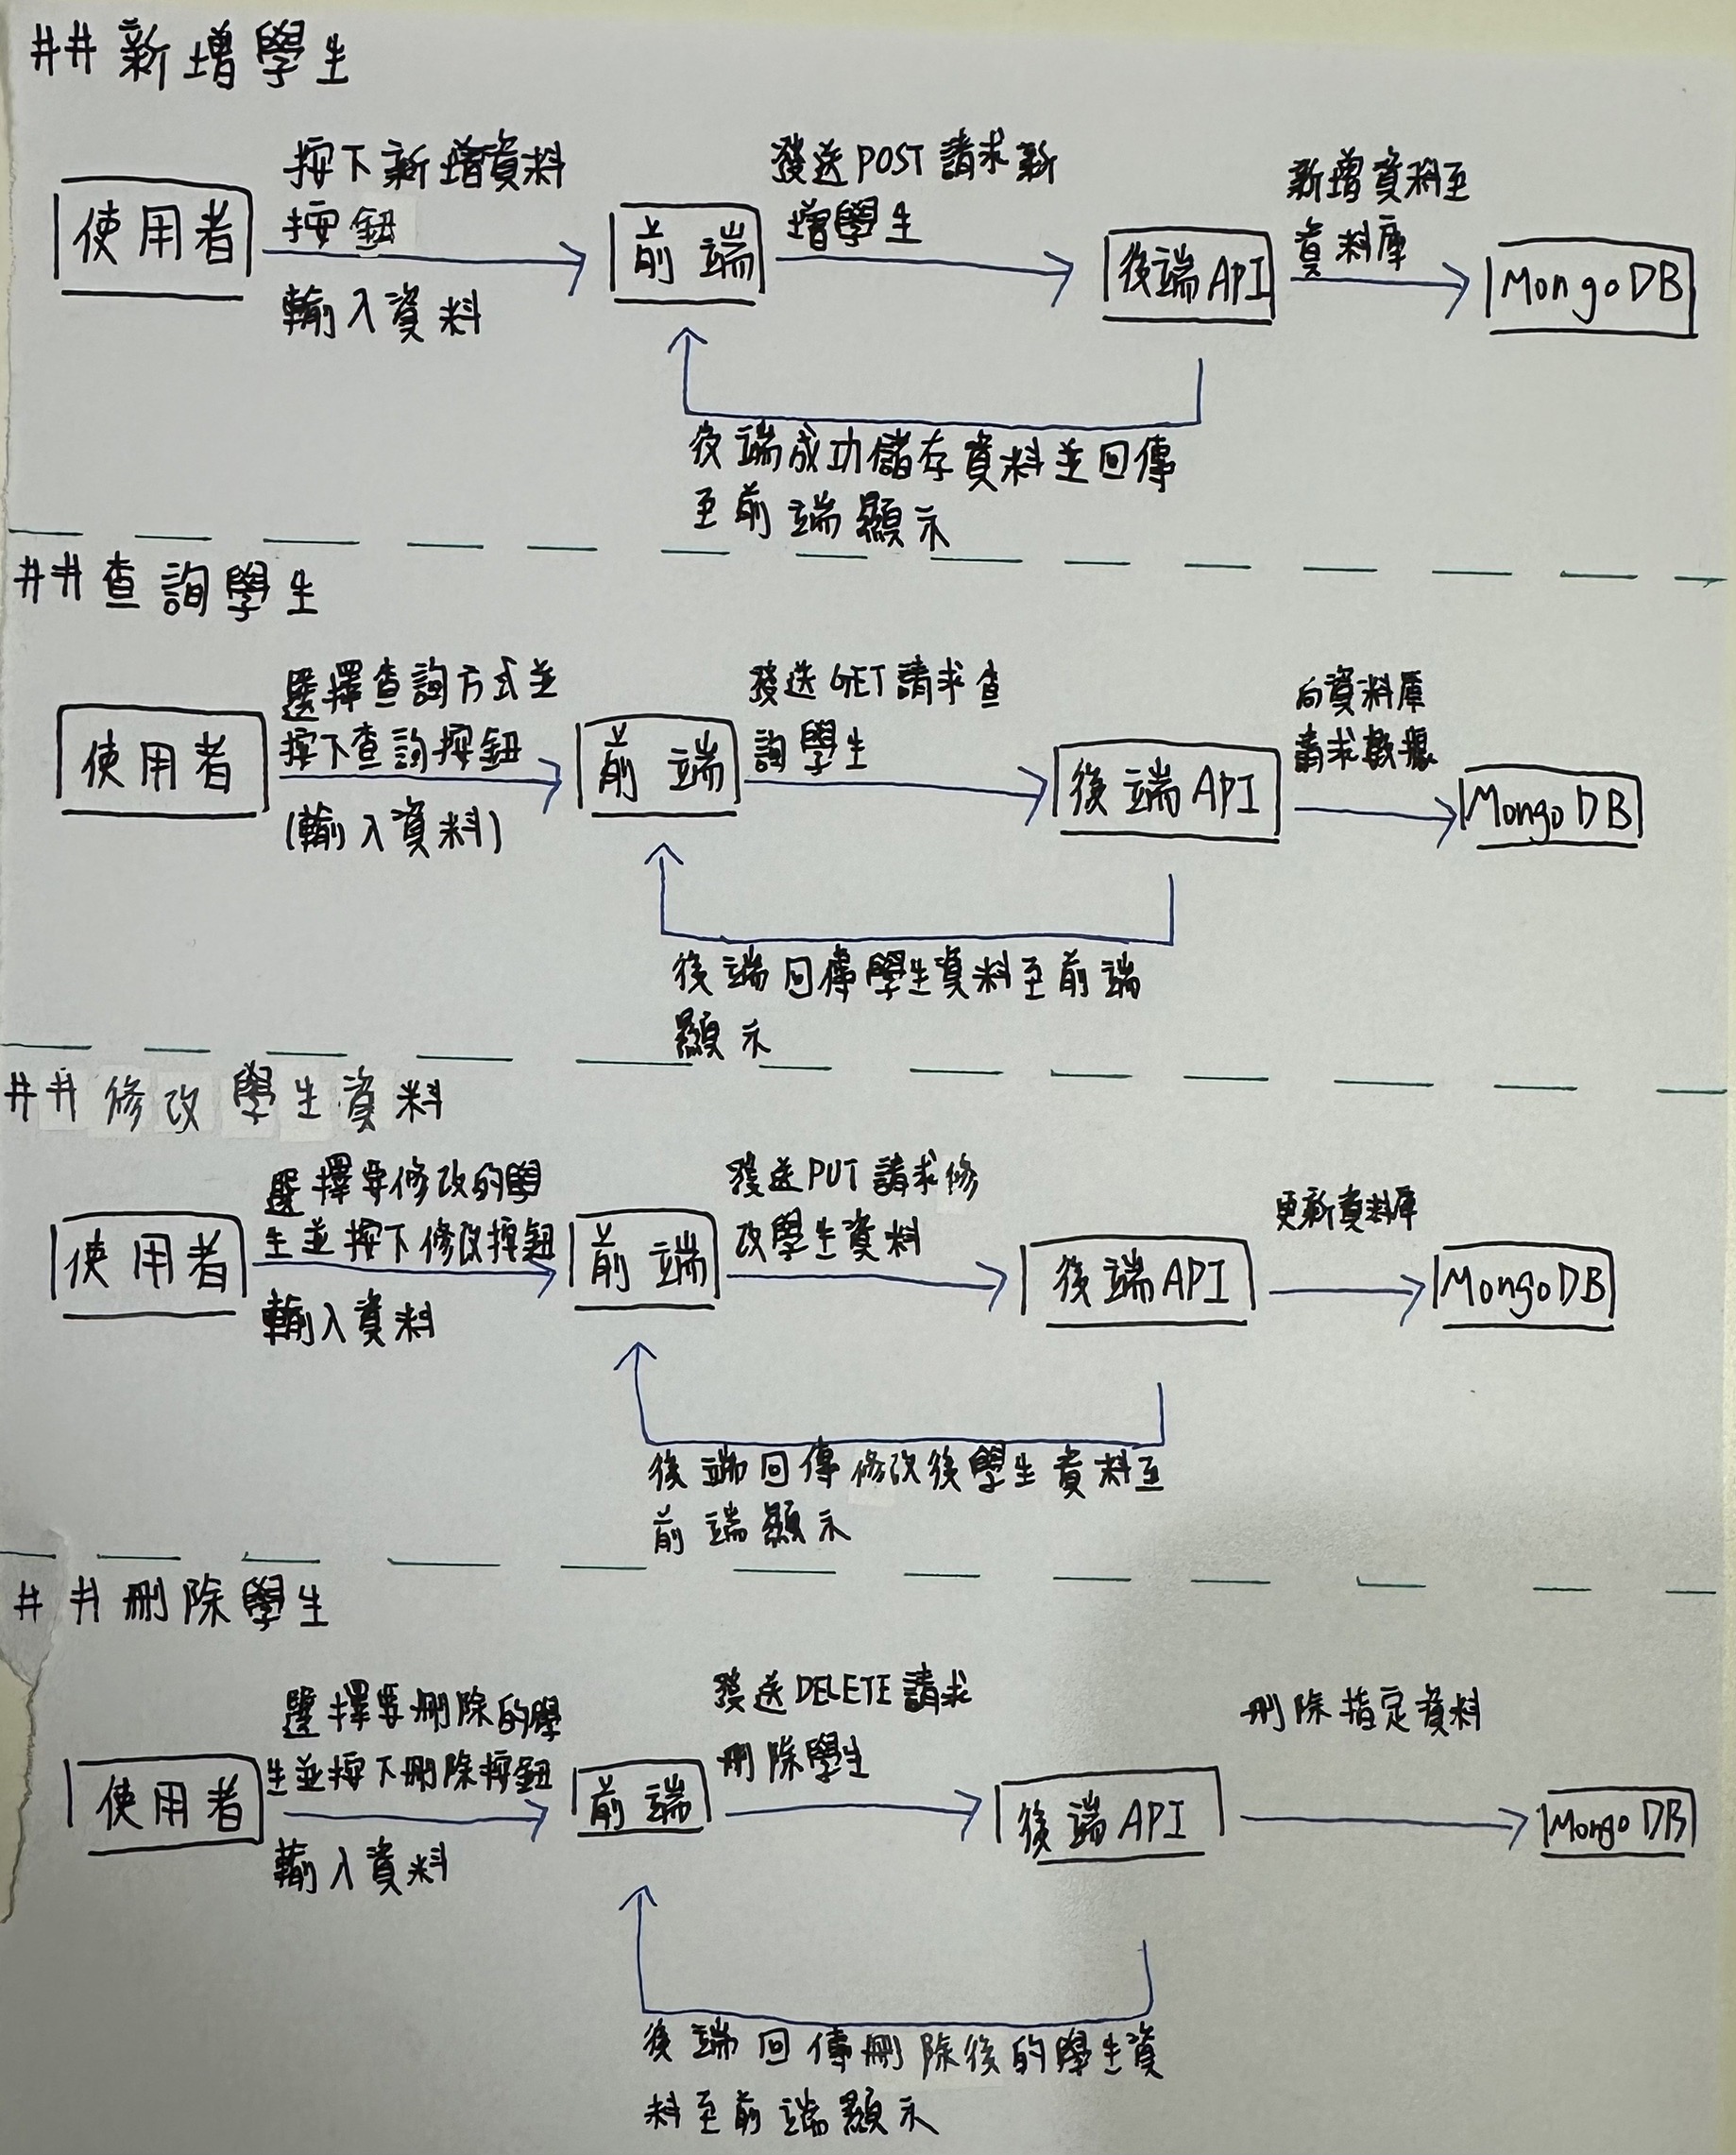 ## 新增學生
按下新增資料
按鈕
輸入資料
使用者
前端
發送POST請求新
增學生
後端API
新增資料至
資料庫
MongoDB
後端成功儲存資料並回傳
至前端顯示
## 查詢學生
選擇查詢方式並
按下查詢按鈕
(輸入資料)
使用者
前端
發送GET請求查
詢學生
後端API
向資料庫
請求數據
MongoDB
後端回傳學生資料至前端
顯示
## 修改學生資料
選擇要修改的學
生並按下修改按鈕
輸入資料
使用者
前端
發送PUT請求修
改學生資料
後端API
更新資料庫
MongoDB
後端回傳修改後學生資料至
前端顯示
## 刪除學生
選擇要刪除的學
生並按下刪除按鈕
輸入資料
使用者
前端
發送DELETE請求
刪除學生
後端API
刪除指定資料
MongoDB
後端回傳刪除後的學生資
料至前端顯示